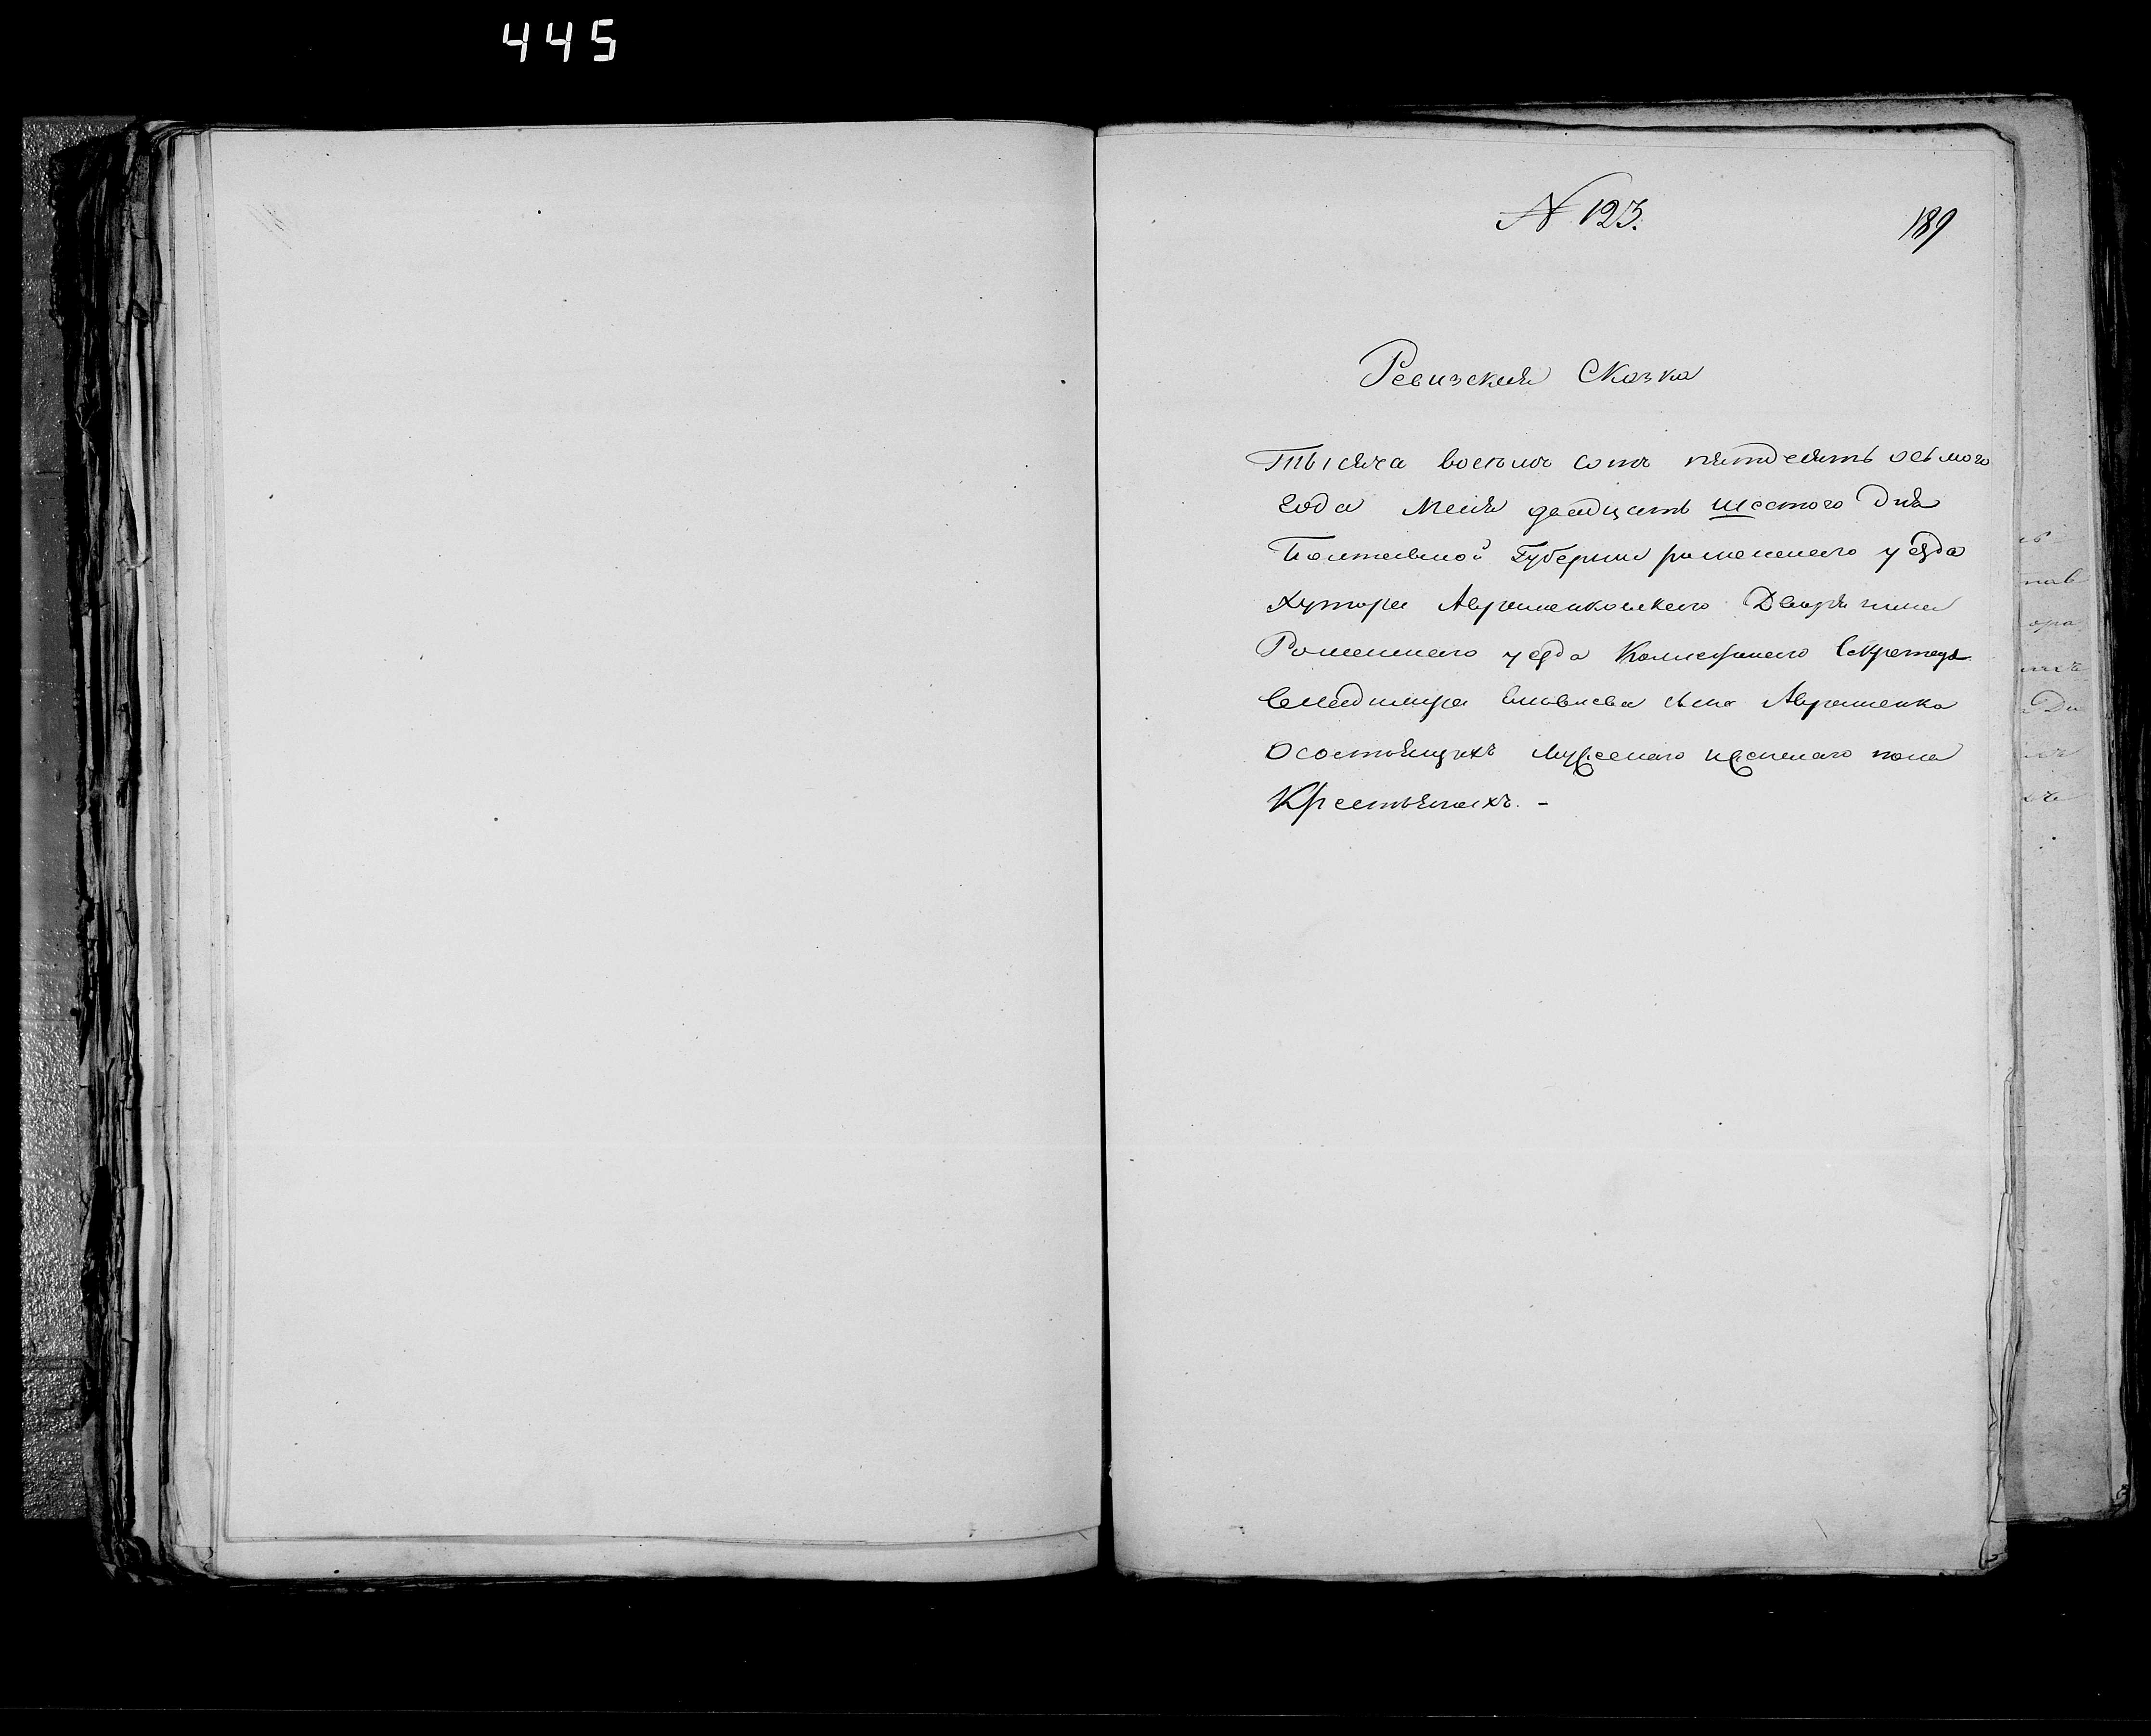 445
N 123.
189
Ревизская Сказка
Тысяча восемъ сотъ пятдесятъ осьмого
года Мая двадцать шестого Дня
Полтавской Губернии роменского уезда
хутора Авраменковского Дворянина
Роменского уезда Колежского Секретаря
сына Авраменка
О состоящихъ мужеского и женского пола
Крестьянахъ. -